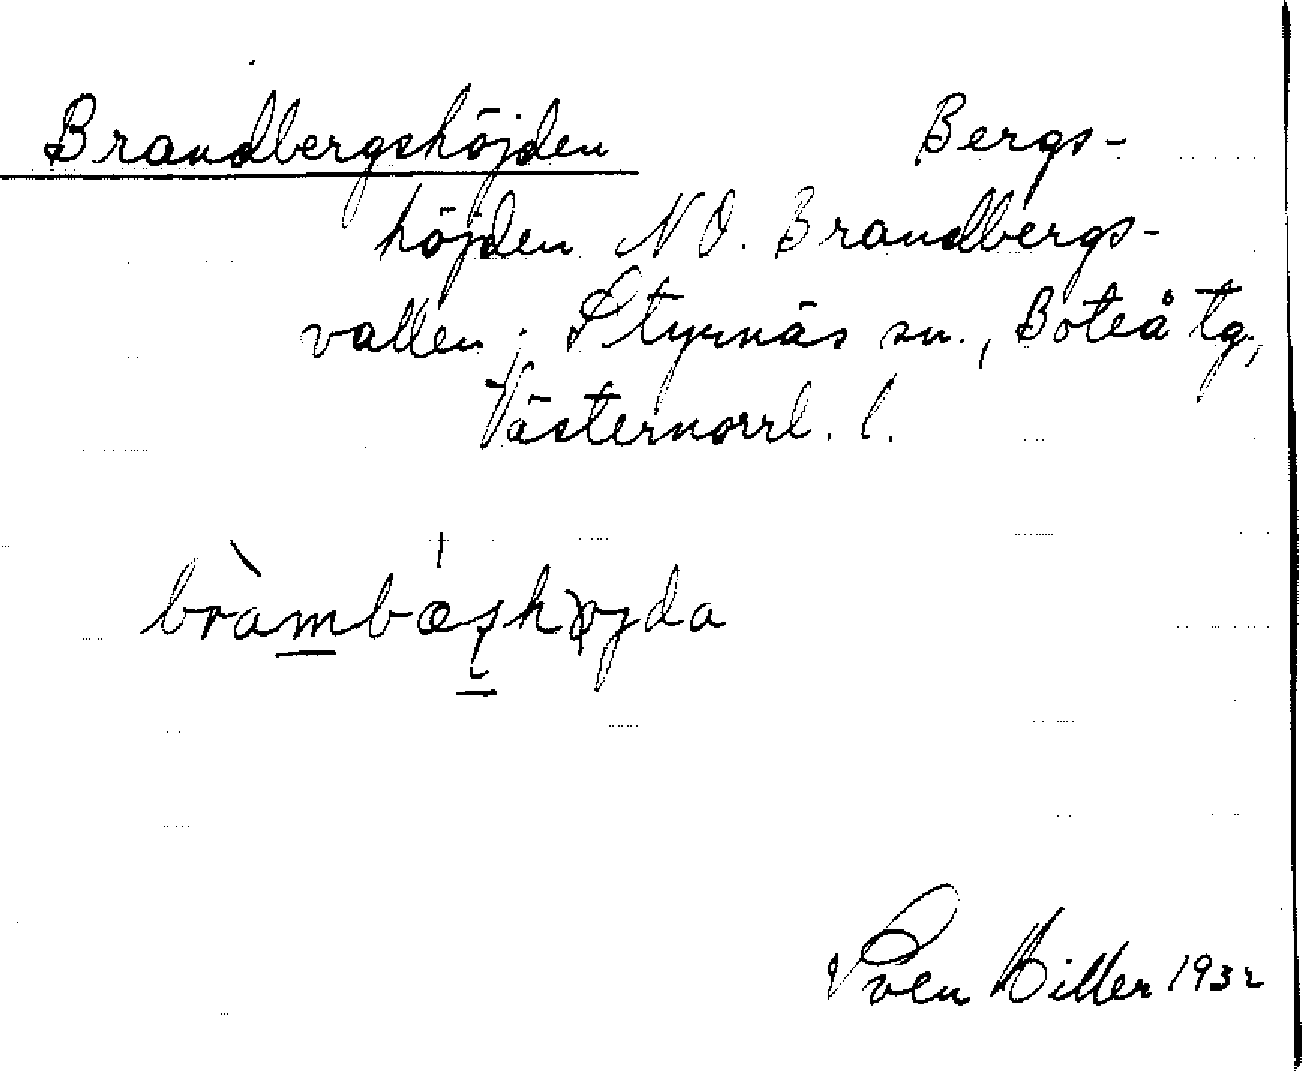 Brandbergshöjden Bergs-
höjden NO. Brandbergs-
vallen; Styrnäs sn., Boteå tg,
Västernorrl. l.
Sven Hiller 1932